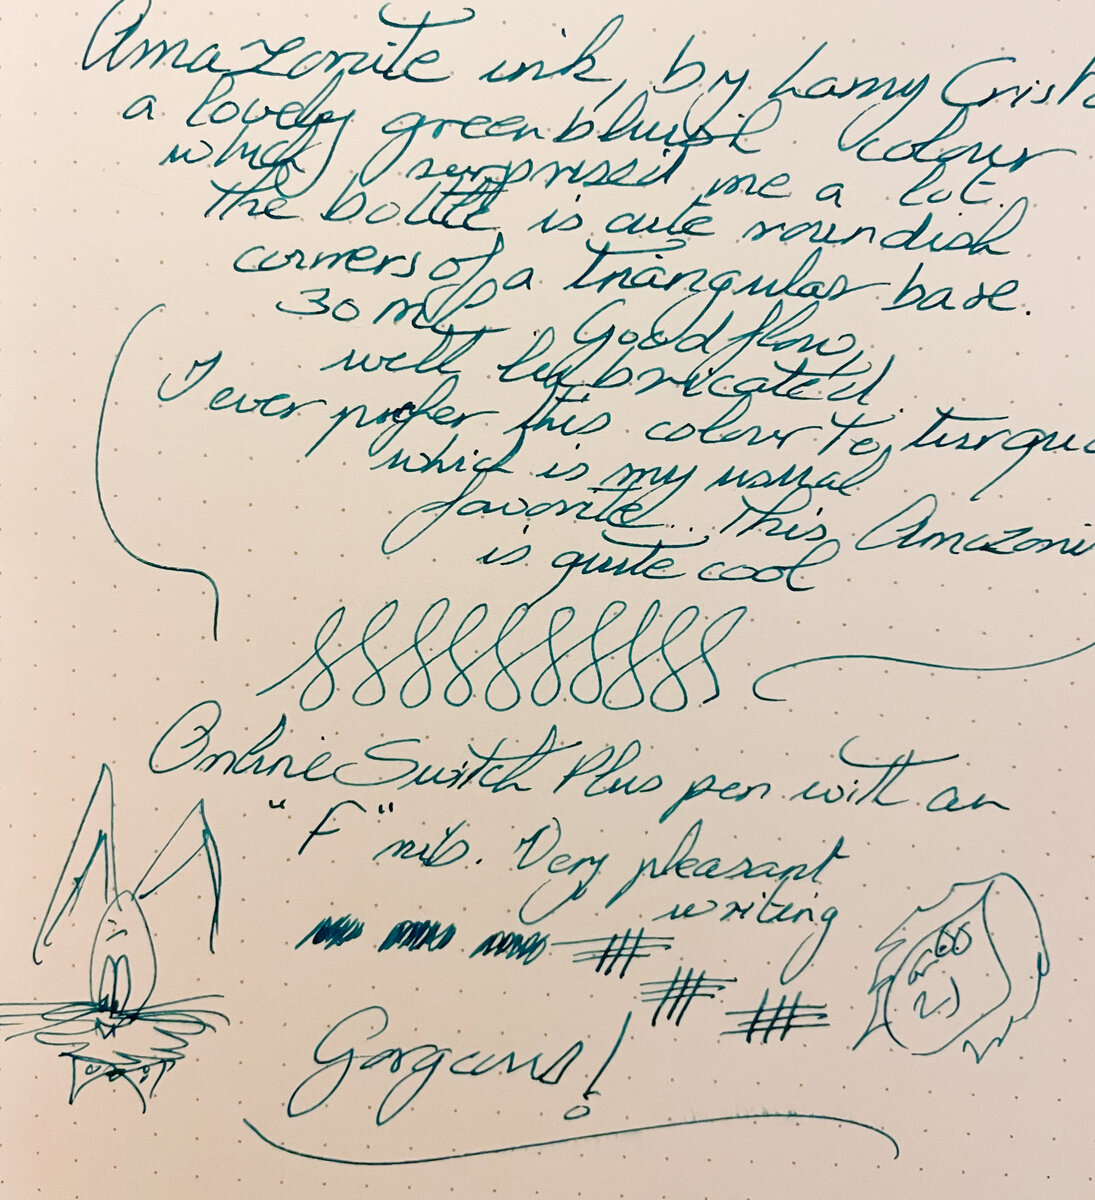 Amazonite ink, by Lamy Crist
a lovely green bluish colour
which surprised me a lot.
The bottle is cute roundish
corners of a triangular base.
30 ml. Good flow,
well lubricate'd.
I ever prefer this colour to turquo
which is my usual
favorite. This Amazoni
is quite cool
Online Switch Plus pen with an
"F" nib. Very pleasant
writing
Gorgeous!